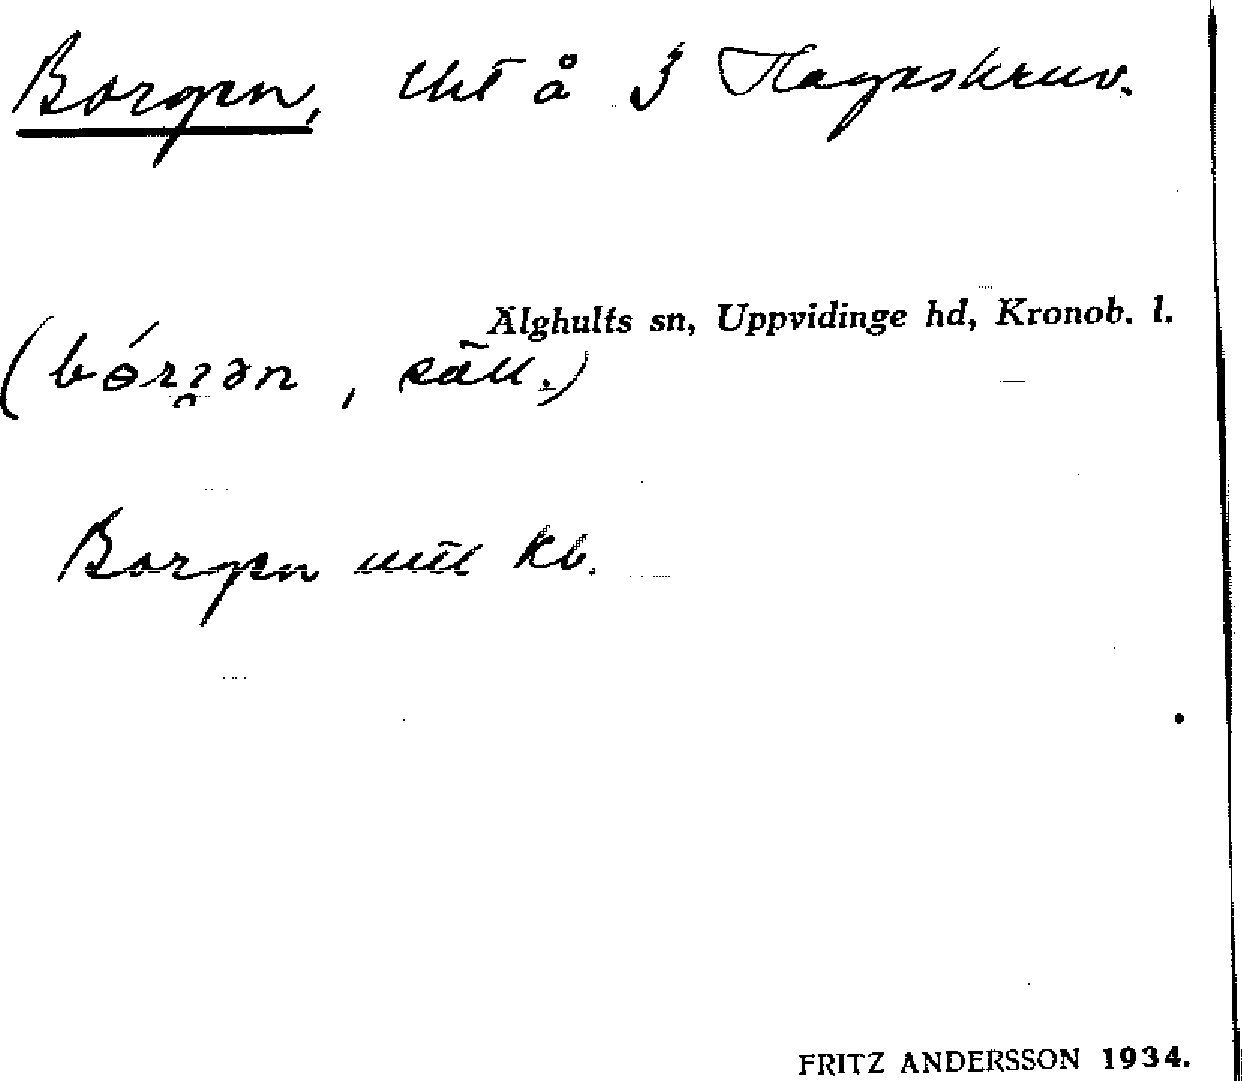 Borgen, lht å 3 Hagaskruv.
Älghults sn, Uppvidinge hd, Kronob. l.
(bórʒən, säll.)
Borgen utt kb.
FRITZ ANDERSSON 1934.